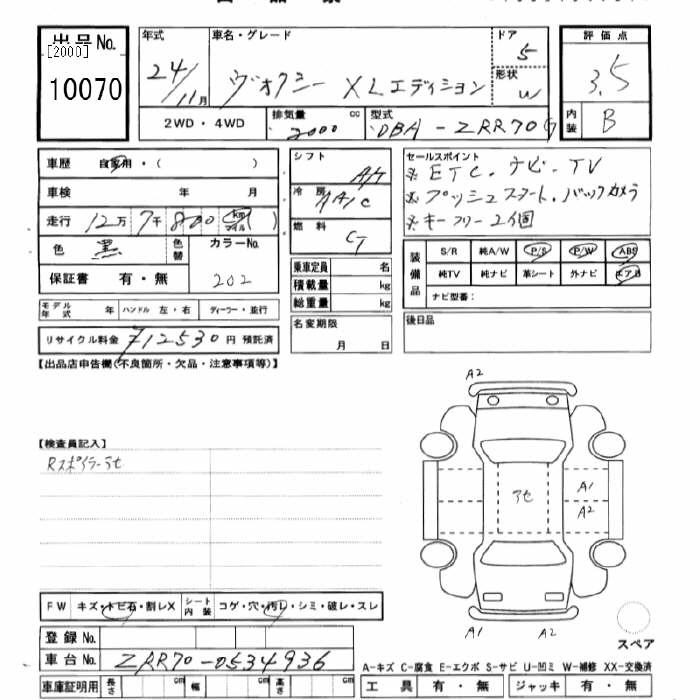 出品No. [2000] 10070
年式 24/11月
車名・グレード ヴォクシー XLエディション
ドア 5
形状 W
評価点 3.5
内装 B
2WD・4WD
排気量 2000 cc
型式 DBA-ZRR70G
車歴 自家用・( )
車検 年 月
走行 12万7千800 km マイル ( )
色 黒 色替 カラーNo. 202
保証書 有・無
モデル年式 年 ハンドル 左・右 ディーラー・並行
リサイクル料金 ¥12530円 預託済
シフト A/T
冷房 AAC
燃料 G
乗車定員 名
積載量 kg
総重量 kg
名変期限 月 日
セールスポイント
※ETC、ナビ、TV
※プッシュスタート、バックカメラ
※キーフリー2個
装備品 S/R 純A/W P/S P/W ABS
純TV 純ナビ 革シート 外ナビ エアB
ナビ型番:
後日品
【出品店申告欄(不良箇所・欠品・注意事項等)】
【検査員記入】
Rスポイラーアセ
A2
アセ
A1
A2
A1 A2
スペア
FW キズ・トビ石・割レX シート内装 コゲ・穴・汚レ・シミ・破レ・スレ
登録No.
車台No. ZRR70-0534936
車庫証明用 長さ cm 幅 cm 高さ cm
A-キズ C-腐食 E-エクボ S-サビ U-凹ミ W-補修 XX-交換済
工具 有・無 ジャッキ 有・無